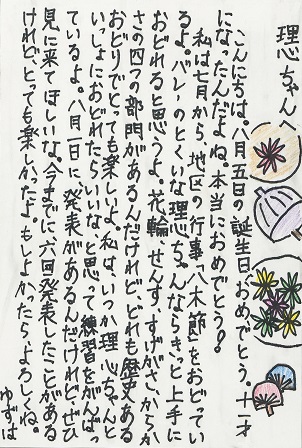 理心ちゃんへ
こんにちは。八月五日の誕生日おめでとう。十一才
になったんだよね。本当におめでとう。
私は七月から、地区の行事「八木節」をおどってい
るよ。バレーのとくいな理心ちゃんならきっと上手に
おどれると思うよ。花輪、せんす、すげがさ、からか
さの四つの部門があるんだけれど、どれも歴史ある
おどりでとっても楽しいよ。私は、いつか理心ちゃんと
いっしょにおどれたらいいな、と思って練習をがんばっ
ているよ。八月一日に発表があるんだけれど、ぜひ
見に来てほしいな。今までに六回発表したことがある
けれど、とっても楽しかったよ。もしよかったら、よろしくね。
ゆずは